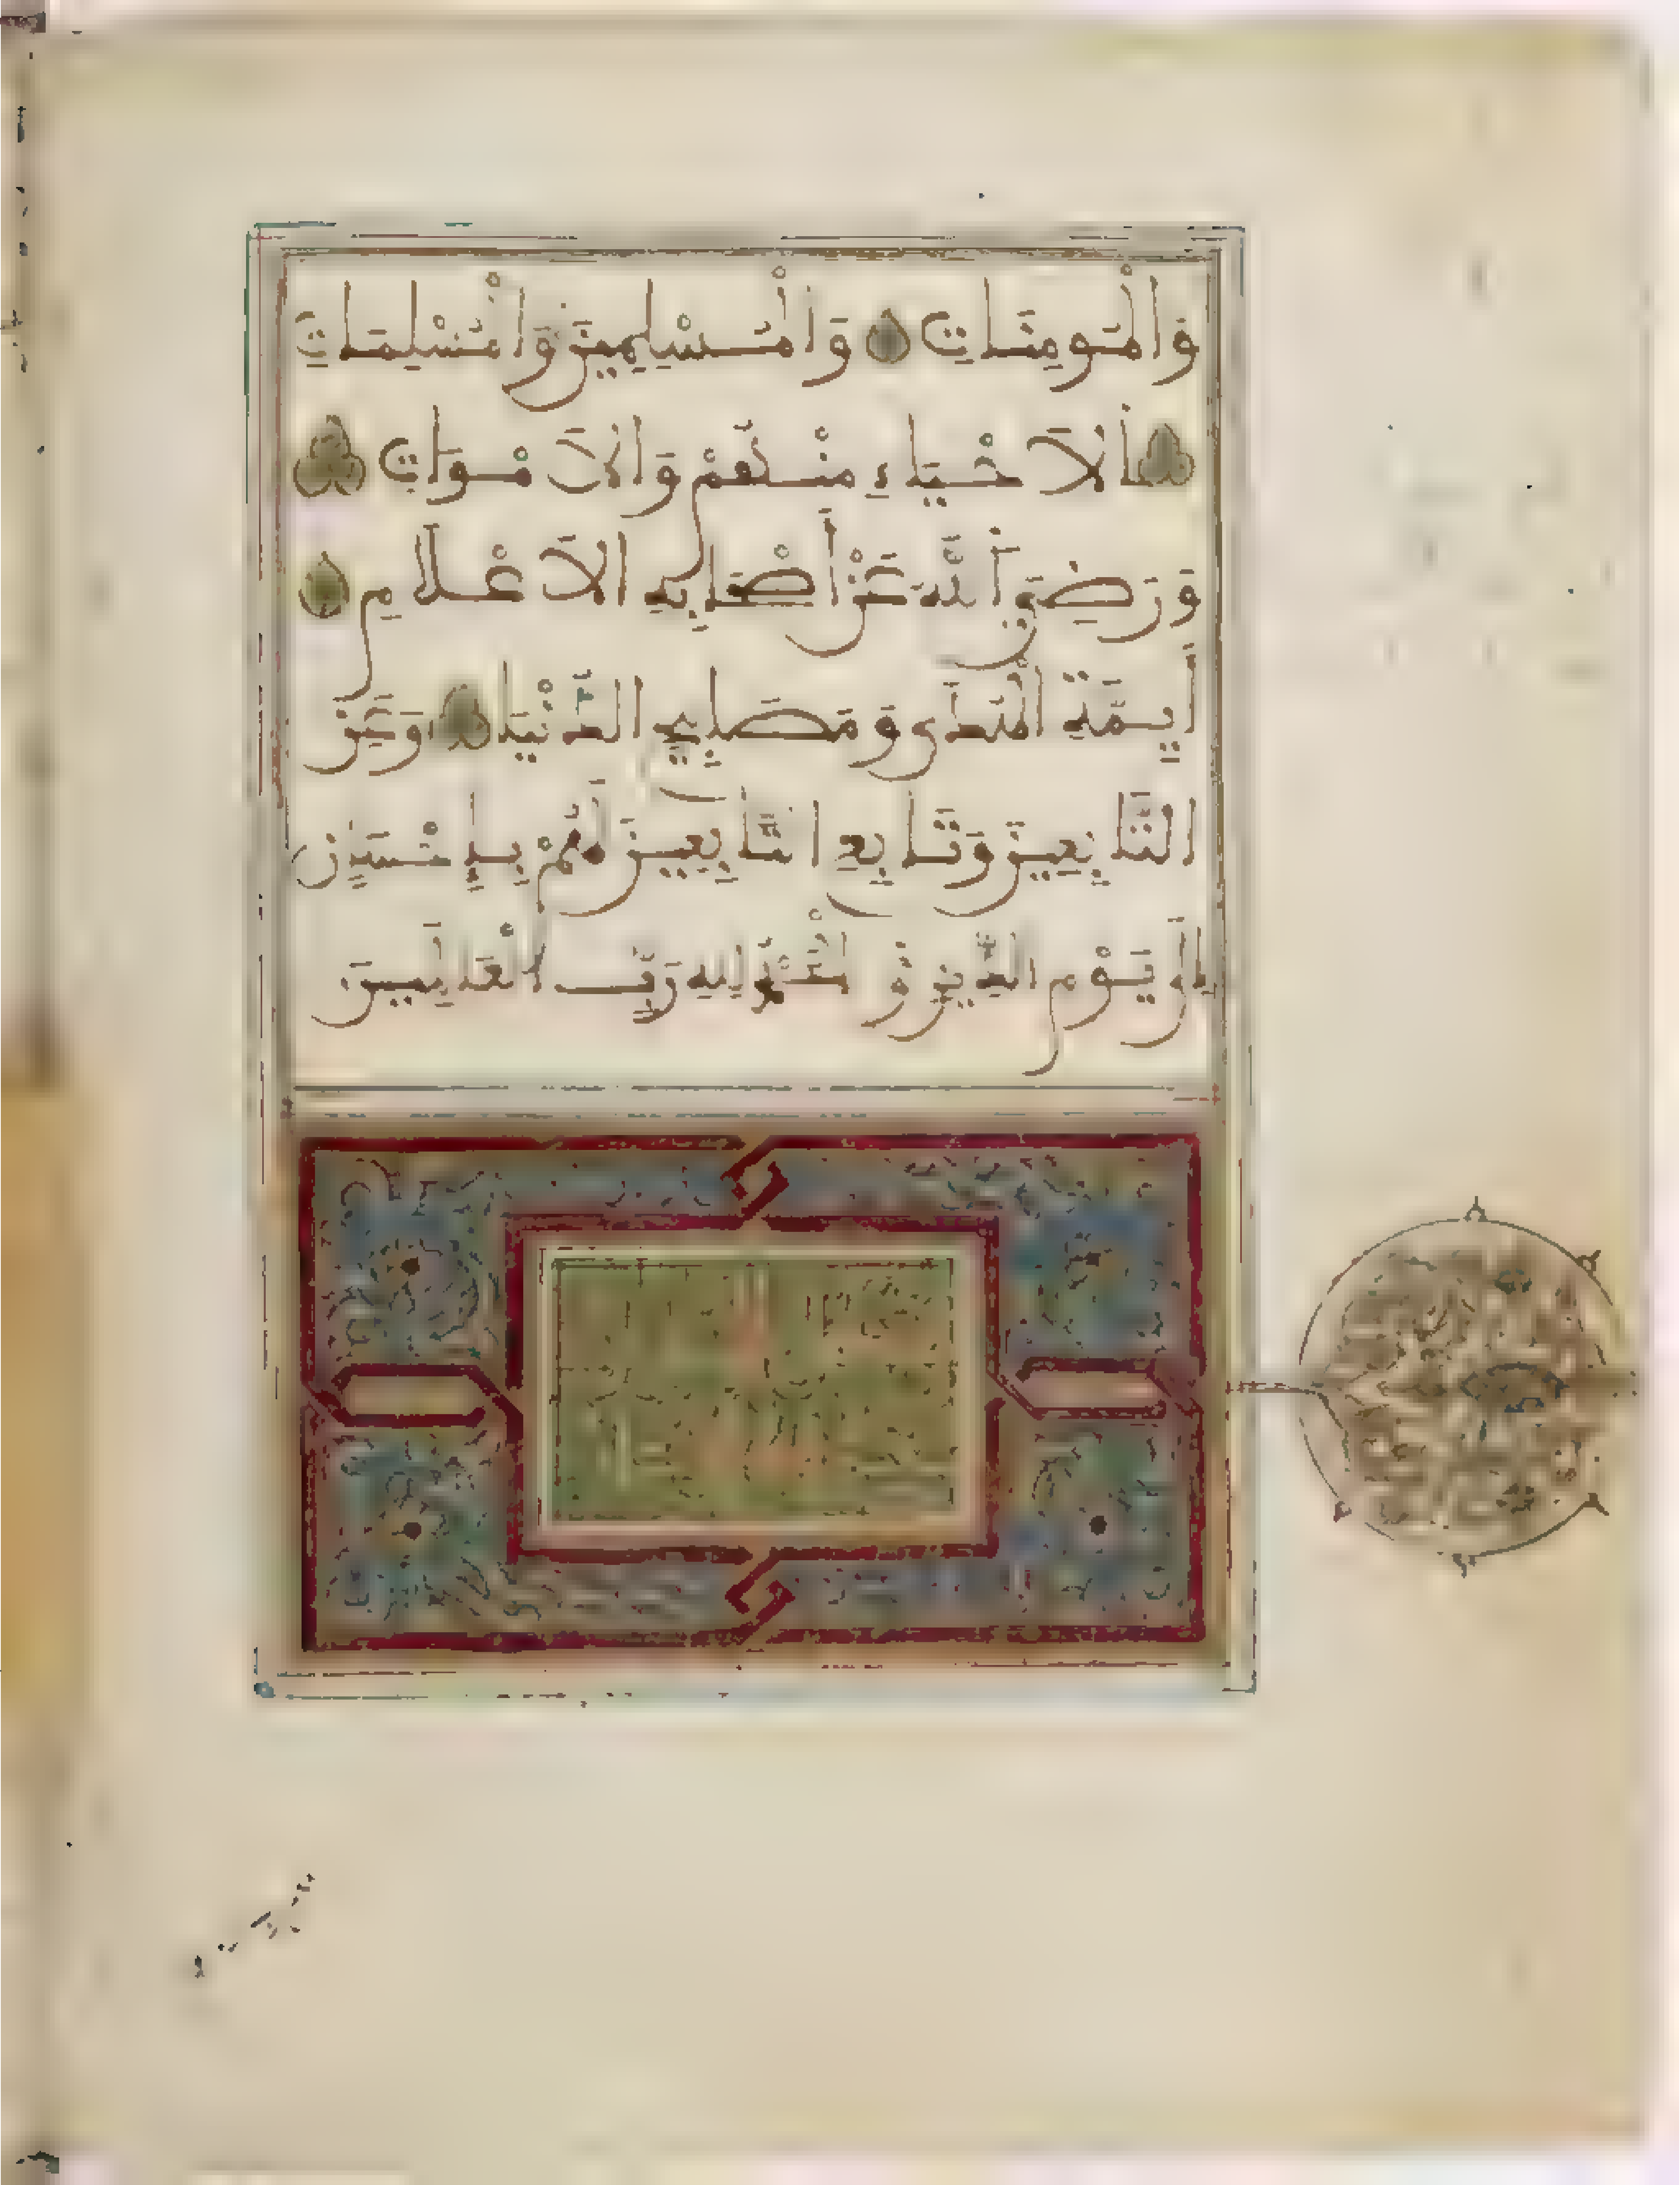 وَالْمُومِنَاتِ وَالْمُسْلِمِينَ وَالْمُسْلِمَاتِ
اَلَاحْيَاءِ مِنْهُمْ وَالَامْوَاتِ
وَرَضِيَ اَللَّهُ عَنْ أَصْحَابِهِ الَاعْلَامِ
أَيِمَّةِ الْهُدَى وَمَصَابِيحِ الدُّنْيَا وَعَنِ
التَّابِعِينَ وَتَابِعِ التَّابِعِينَ لَهُمْ بِإِحْسَانٍ
إِلَى يَوْمِ الدِّينِ وَالْحَمْدُ لِلهِ رَبِّ الْعَالَمِينَ